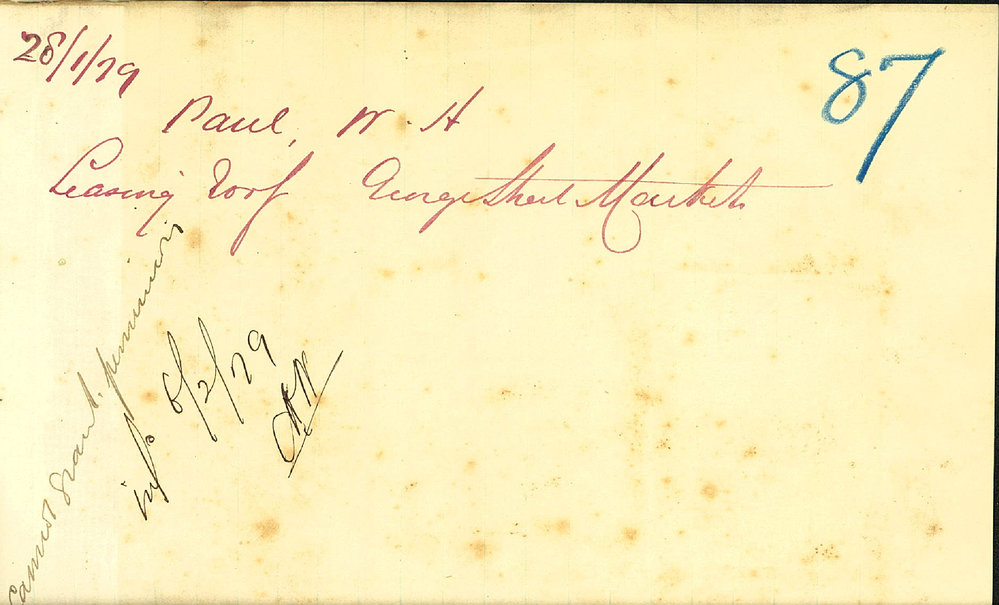 28/1/79
87
Paul, W. H
Leasing roof George Street Markets
Cannot grant permission
inf
6/2/79